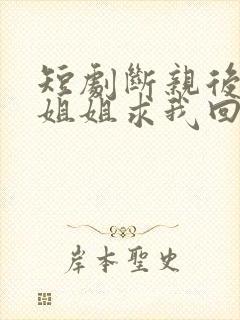 短劇斷親後
姐姐求我回
岸本聖史